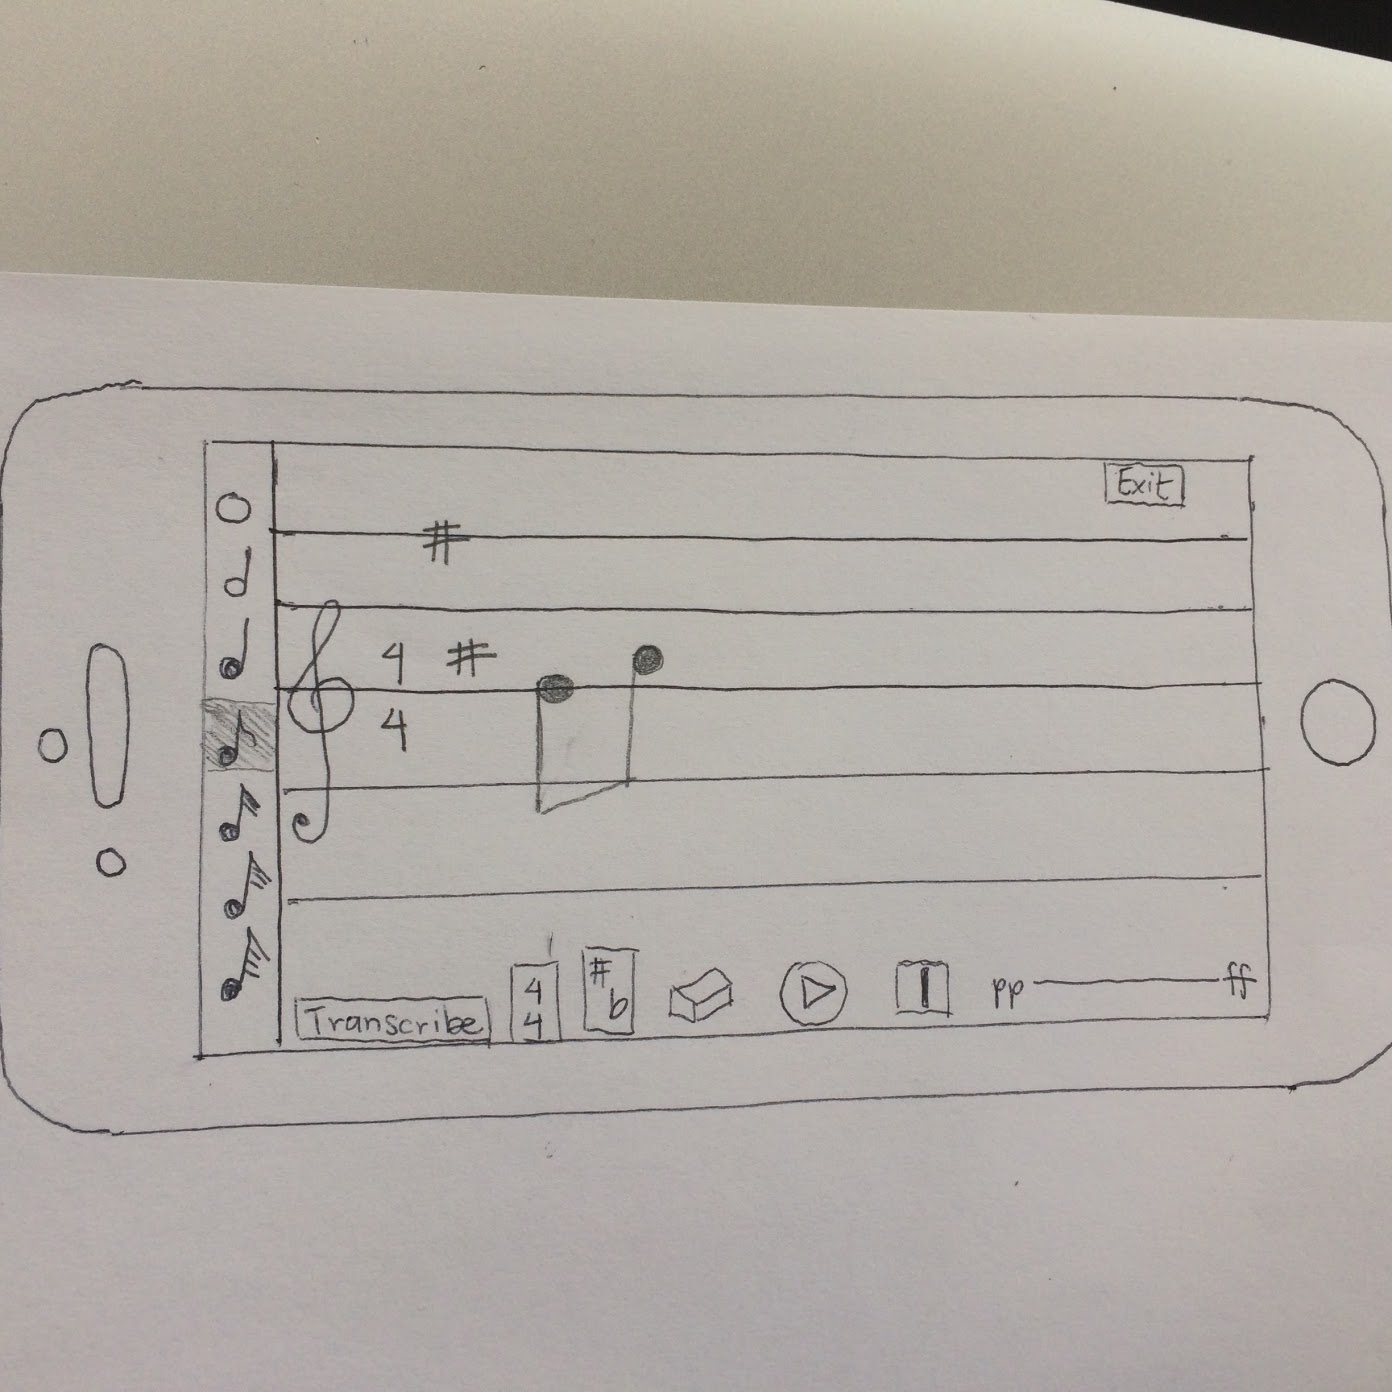 Exit
#
4 #
4
Transcribe
4
4
#
b
pp ff